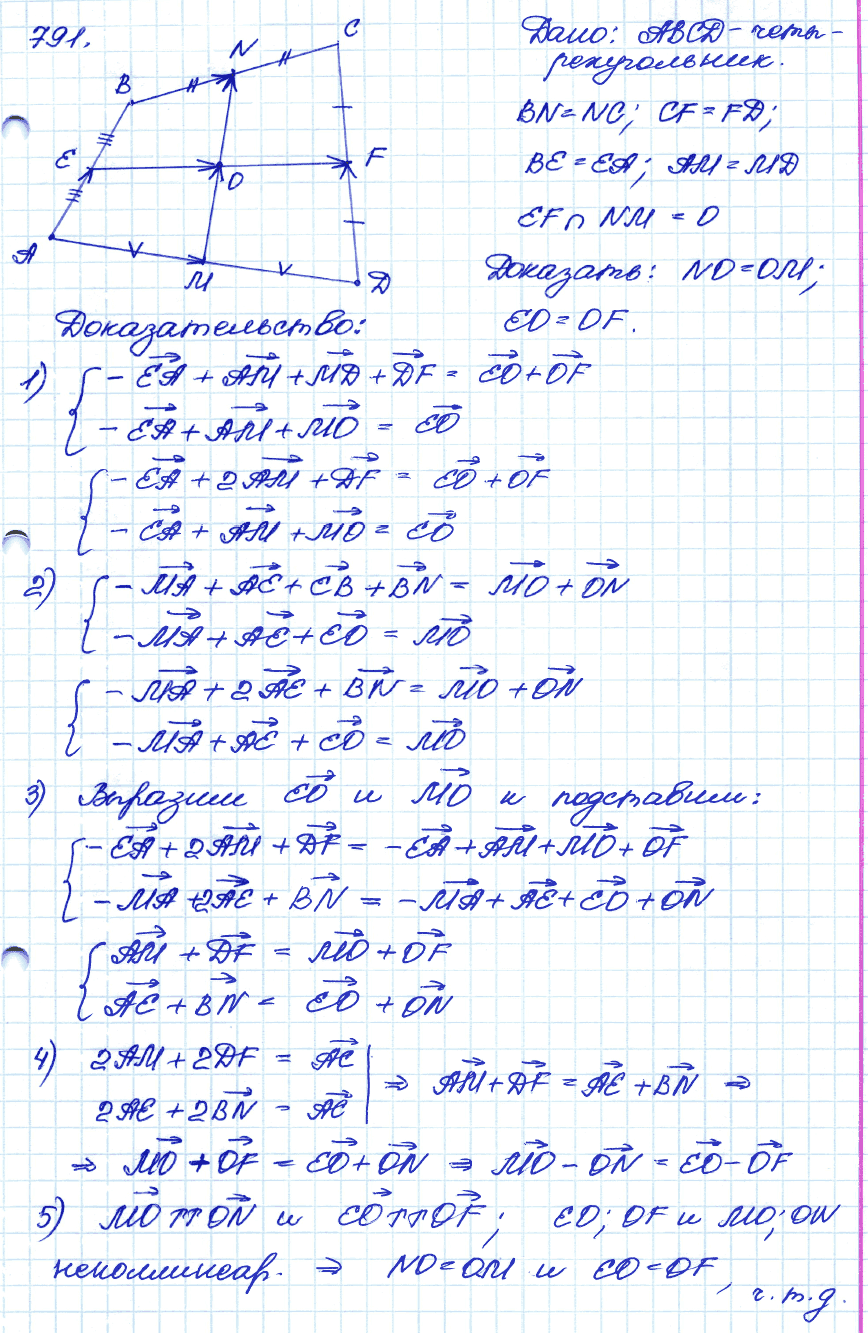 791.
B
N
C
E
O
F
A
M
D
Дано: ABCD - четы-
рехугольник.
BN = NC; CF = FD;
BE = EA; AM = MD
EF ∩ NM = O
Доказать: NO = OM;
EO = OF.
Доказательство:
1) { - EA⃗ + AM⃗ + MD⃗ + DF⃗ = EO⃗ + OF⃗
- EA⃗ + AM⃗ + MO⃗ = EO⃗
{ - EA⃗ + 2AM⃗ + DF⃗ = EO⃗ + OF⃗
- EA⃗ + AM⃗ + MO⃗ = EO⃗
2) { - MA⃗ + AE⃗ + EB⃗ + BN⃗ = MO⃗ + ON⃗
- MA⃗ + AE⃗ + EO⃗ = MO⃗
{ - MA⃗ + 2AE⃗ + BN⃗ = MO⃗ + ON⃗
- MA⃗ + AE⃗ + EO⃗ = MO⃗
3) Выразим EO⃗ и MO⃗ и подставим:
{ - EA⃗ + 2AM⃗ + DF⃗ = - EA⃗ + AM⃗ + MO⃗ + OF⃗
- MA⃗ + 2AE⃗ + BN⃗ = - MA⃗ + AE⃗ + EO⃗ + ON⃗
{ AM⃗ + DF⃗ = MO⃗ + OF⃗
AE⃗ + BN⃗ = EO⃗ + ON⃗
4) 2AM + 2DF = AC⃗ | ⇒ AM⃗ + DF⃗ = AE⃗ + BN⃗ ⇒
2AE + 2BN⃗ = AC⃗
⇒ MO⃗ + OF⃗ = EO⃗ + ON⃗ ⇒ MO⃗ - ON⃗ = EO⃗ - OF⃗
5) MO⃗ ↑↑ ON⃗ и EO⃗ ↑↑ OF⃗; EO; OF и MO; ON
неколлинеар. ⇒ NO = OM и EO = OF,
ч.т.д.